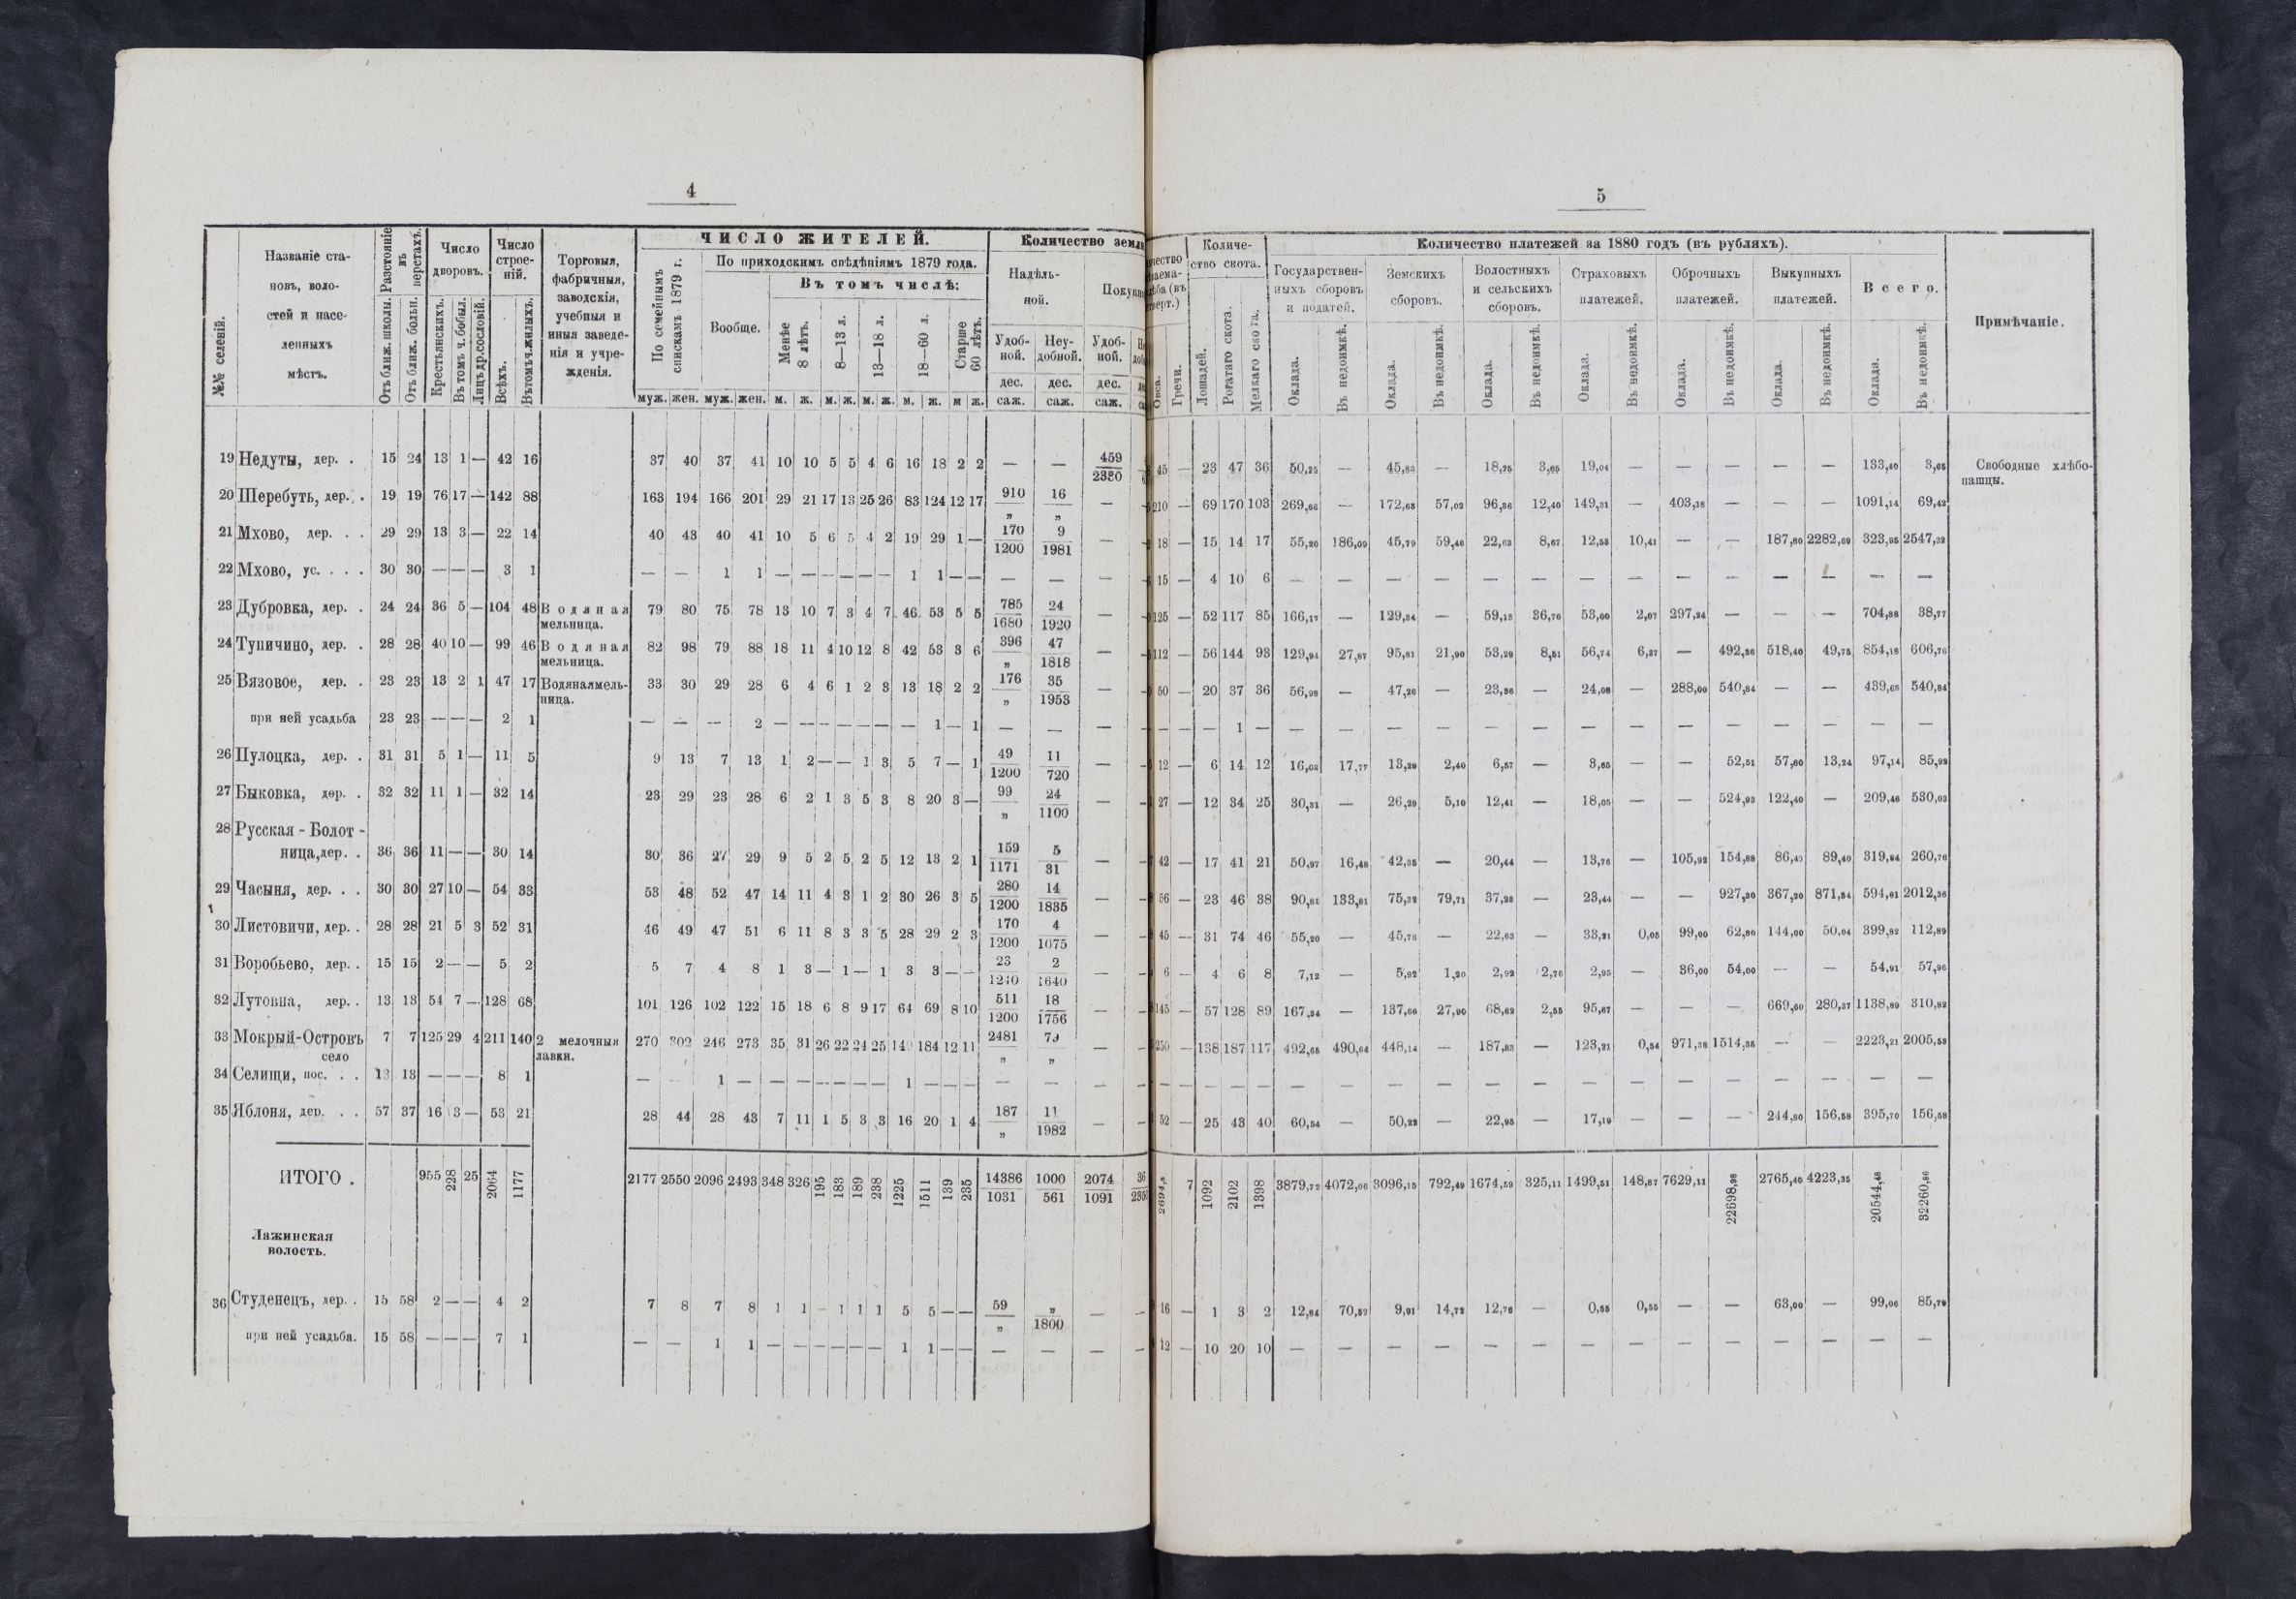 4
№№ селеній.
Названіе ста-
новъ, воло-
стей и насе-
ленныхъ
мѣстъ.
Разстояніе въ верстахъ.
Отъ ближ. школы.
Отъ ближ. больн.
Число дворовъ.
Крестьянскихъ.
Въ томъ ч. бобыл.
Лицъ др. сословій.
Число строе-
ній.
Всѣхъ.
Въ томъ ч. жилыхъ.
Торговыя,
фабричныя,
заводскія,
учебныя и
иныя заведе-
нія и учре-
жденія.
ЧИСЛО ЖИТЕЛЕЙ.
По семейнымъ спискамъ 1879 г.
По приходскимъ свѣдѣніямъ 1879 года.
Вообще.
Въ томъ числѣ:
Менѣе 8 лѣтъ.
8—13 л.
13—18 л.
18—60 л.
Старше 60 лѣтъ.
муж. жен. муж. жен. м. ж. м. ж. м. ж. м. ж. м ж.
Количество земли
Надѣль-
ной.
Удоб-
ной.
Неу-
добной.
Удоб-
ной.
дес. дес. дес.
саж. саж. саж.
19 Недуты, дер. . 15 24 13 1 — 42 16 37 40 37 41 10 10 5 5 4 6 16 18 2 2 — — 459/2380
20 Шеребуть, дер. . 19 19 76 17 — 142 88 163 194 166 201 29 21 17 13 25 26 83 124 12 17 910/„ 16/„ —
21 Мхово, дер. . . 29 29 13 3 — 22 14 40 43 40 41 10 5 6 5 4 2 19 29 1 — 170/1200 9/1981 —
22 Мхово, ус. . . . 30 30 — — — 3 1 — — 1 1 — — — — — — 1 1 — — — — —
23 Дубровка, дер. . 24 24 36 5 — 104 48 Водяная мельница. 79 80 75 78 13 10 7 3 4 7 46 53 5 5 785/1680 24/1920 —
24 Тупичино, дер. . 28 28 40 10 — 99 46 Водяная мельница. 82 98 79 88 18 11 4 10 12 8 42 53 3 6 396/„ 47/1818 —
25 Вязовое, дер. . 23 23 13 2 1 47 17 Водяная мельница. 33 30 29 28 6 4 6 1 2 3 13 18 2 2 176/„ 35/1953 —
при ней усадьба 23 23 — — — 2 1 — — — 2 — — — — — — — 1 — 1 — — —
26 Пулоцка, дер. . 31 31 5 1 — 11 5 9 13 7 13 1 2 — — 1 3 5 7 — 1 49/1200 11/720 —
27 Быковка, дер. . 32 32 11 1 — 32 14 23 29 23 28 6 2 1 3 5 3 8 20 3 — 99/„ 24/1100 —
28 Русская - Болот -
ница, дер. . 36 36 11 — — 30 14 30 36 27 29 9 5 2 5 2 5 12 13 2 1 159/1171 5/31 —
29 Часыня, дер. . . 30 30 27 10 — 54 33 53 48 52 47 14 11 4 3 1 2 30 26 3 5 280/1200 14/1835 —
30 Листовичи, дер. . 28 28 21 5 3 52 31 46 49 47 51 6 11 8 3 3 5 28 29 2 3 170/1200 4/1075 —
31 Воробьево, дер. . 15 15 2 — — 5 2 5 7 4 8 1 3 — 1 — 1 3 3 — — 23/1240 2/1640 —
32 Лутовна, дер. . 13 13 54 7 — 128 68 101 126 102 122 15 18 6 8 9 17 64 69 8 10 511/1200 18/1756 —
33 Мокрый-Островъ
село 7 7 125 29 4 211 140 2 мелочныя лавки. 270 302 246 273 35 31 26 22 24 25 149 184 12 11 2481/„ 79/„ —
34 Селищи, пос. . . 13 13 — — — 8 1 — — 1 — — — — — — — 1 — — — — — —
35 Яблоня, дер. . . 57 37 16 3 — 53 21 28 44 28 43 7 11 1 5 3 3 16 20 1 4 187/„ 11/1982 —
ИТОГО . 955 228 25 2064 1177 2177 2550 2096 2493 348 326 195 183 189 238 1225 1511 139 235 14386/1031 1000/561 2074/1091
Лажинская
волость.
36 Студенецъ, дер. . 15 58 2 — — 4 2 7 8 7 8 1 1 – 1 1 1 5 5 — — 59/„ „/1800 —
при ней усадьба. 15 58 — — — 7 1 — — 1 1 — — — — — — 1 1 — — — — —
5
Овса.
Гречи.
Количе-
ство скота.
Лошадей.
Рогатаго скота.
Мелкаго скота.
Количество платежей за 1880 годъ (въ рубляхъ).
Государствен-
ныхъ сборовъ
и податей.
Земскихъ
сборовъ.
Волостныхъ
и сельскихъ
сборовъ.
Страховыхъ
платежей.
Оброчныхъ
платежей.
Выкупныхъ
платежей.
Всего.
Оклада. Въ недоимкѣ. Оклада. Въ недоимкѣ. Оклада. Въ недоимкѣ. Оклада. Въ недоимкѣ. Оклада. Въ недоимкѣ. Оклада. Въ недоимкѣ. Оклада. Въ недоимкѣ.
Примѣчаніе.
45 — 23 47 36 50,25 — 45,83 — 18,75 3,65 19,04 — — — — — 133,40 3,65 Свободные хлѣбо-
пашцы.
210 — 69 170 103 269,66 — 172,63 57,02 96,36 12,40 149,31 — 403,18 — — — 1091,14 69,42
18 — 15 14 17 55,20 186,09 45,79 59,46 22,63 8,67 12,53 10,41 — — 187,80 2282,69 323,95 2547,32
15 — 4 10 6 — — — — — — — — — — — — — —
125 — 52 117 85 166,17 — 129,34 — 59,13 36,70 53,00 2,07 297,24 — — — 704,88 38,77
112 — 56 144 93 129,94 27,87 95,81 21,90 53,29 8,51 56,74 6,37 — 492,36 518,40 49,75 854,18 606,76
50 — 20 37 36 56,98 — 47,26 — 23,36 — 24,08 — 288,00 540,84 — — 439,68 540,84
— — — 1 — — — — — — — — — — — — — — —
12 — 6 14 12 16,03 17,77 13,29 2,40 6,57 — 3,65 — — 52,51 57,60 13,24 97,14 85,92
27 — 12 34 25 30,31 — 26,29 5,10 12,41 — 18,05 — — 524,93 122,40 — 209,46 530,03
42 — 17 41 21 50,97 16,48 42,35 — 20,44 — 13,76 — 105,92 154,88 86,40 89,40 319,84 260,76
56 — 23 46 38 90,81 133,81 75,32 79,71 37,28 — 23,44 — — 927,30 367,20 871,54 594,61 2012,36
45 — 31 74 46 55,20 — 45,78 — 22,63 — 33,21 0,05 99,00 62,80 144,00 50,04 399,82 112,89
6 — 4 6 8 7,12 — 5,92 1,20 2,92 2,76 2,95 — 36,00 54,00 — — 54,91 57,96
145 — 57 128 89 167,34 — 137,06 27,90 68,62 2,55 95,67 — — — 669,60 280,37 1138,89 310,82
250 — 138 187 117 492,65 490,64 448,14 — 187,83 — 123,21 0,54 971,38 1514,35 — — 2223,21 2005,53
— — — — — — — — — — — — — — — — — — —
52 — 25 43 40 60,54 — 50,22 — 22,95 — 17,19 — — — 244,80 156,58 395,70 156,58
2694,5 7 1092 2102 1398 3879,72 4072,06 3096,15 792,49 1674,59 325,11 1499,51 148,87 7629,11 22698,98 2765,40 4223,35 20544,48 32260,86
16 — 1 3 2 12,84 70,52 9,91 14,72 12,76 — 0,55 0,55 — — 63,00 — 99,06 85,79
12 — 10 20 10 — — — — — — — — — — — — — —